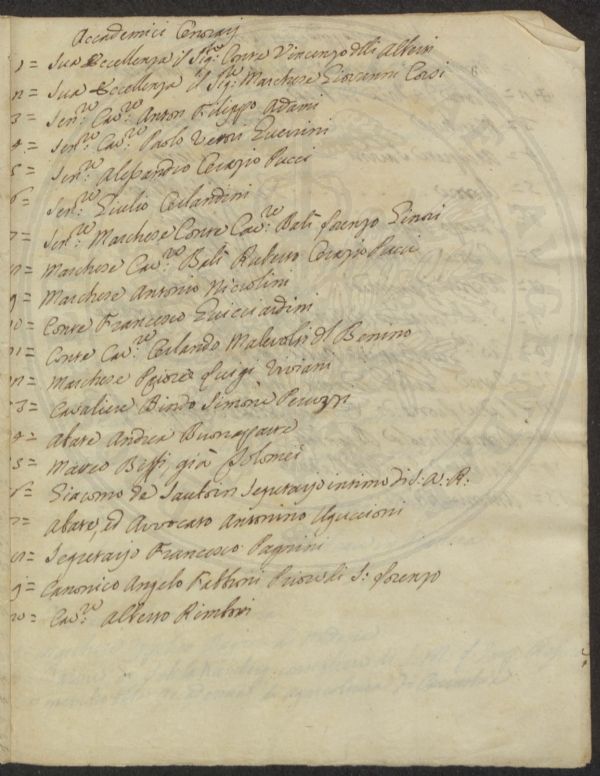 Accademici Onorarj
1 = Sua Eccellenza il Sig:re Conte Vincenzo delli Alberti
2 = Sua Eccellenza il Sig:re Marchese Giovanni Corsi
3 = Sen:re Cav:re Anton Filippo Adami
4 = Sen:re Cav:re Paolo Vettori Guerrini
5 = Sen:re Alessandro Orazio Pucci
6 = Sen:re Giulio Orlandini
7 = Sen:re Marchese Conte Cav:re Balì Lorenzo Ginori
8 = Marchese Cav:re Balì Ruberto Orazio Pucci
9 = Marchese Antonio Niccolini
10 = Conte Francesco Guicciardini
11 = Conte Cav:re Orlando Malevolti del Benino
12 = Marchese Priore Luigi Viviani
3 = Cavaliere Bindo Simone Peruzzi
4 = Abate Andrea Buonaparte
5 = Marco Biffi, già Tolomei
6 = Giacomo de Sauboin Segretario intimo di S: A: R:
7 = Abate, ed Avvocato Antonino Uguccioni
8 = Segretario Francesco Pagnini
9 = Canonico Angelo Fabbroni Priore di S: Lorenzo
20 = Cav:re Alberto Rimbotti